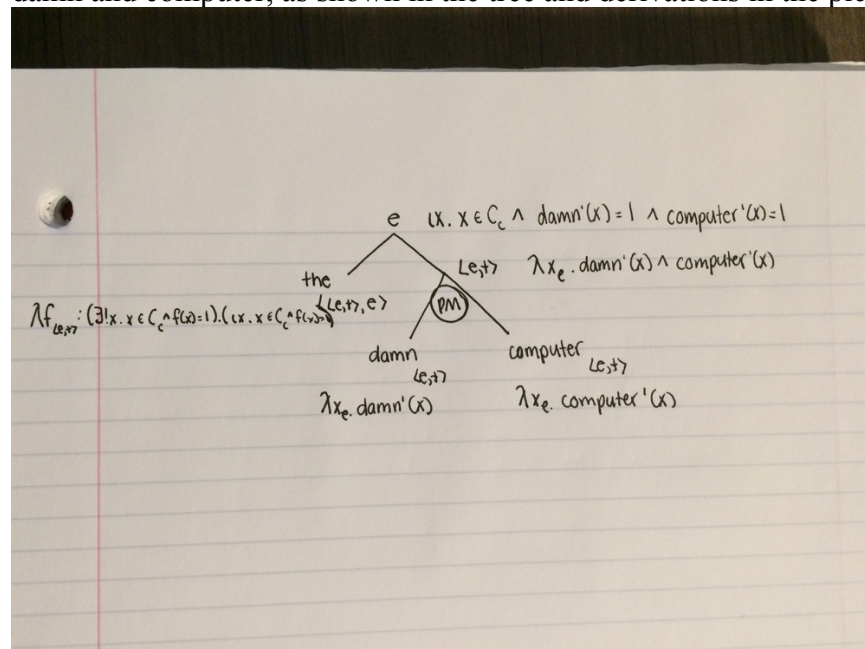 damn and computer, as shown in the tree and derivations in the
e ιx. x ∈ C_c ∧ damn'(x)=1 ∧ computer'(x)=1
the
<e,t> λx_e. damn'(x) ∧ computer'(x)
<<e,t>,e>
PM
λf_<e,t>: (∃!x. x ∈ C_c ∧ f(x)=1).(ιx. x ∈ C_c ∧ f(x)=1)
damn <e,t>
computer <e,t>
λx_e. damn'(x)
λx_e. computer'(x)